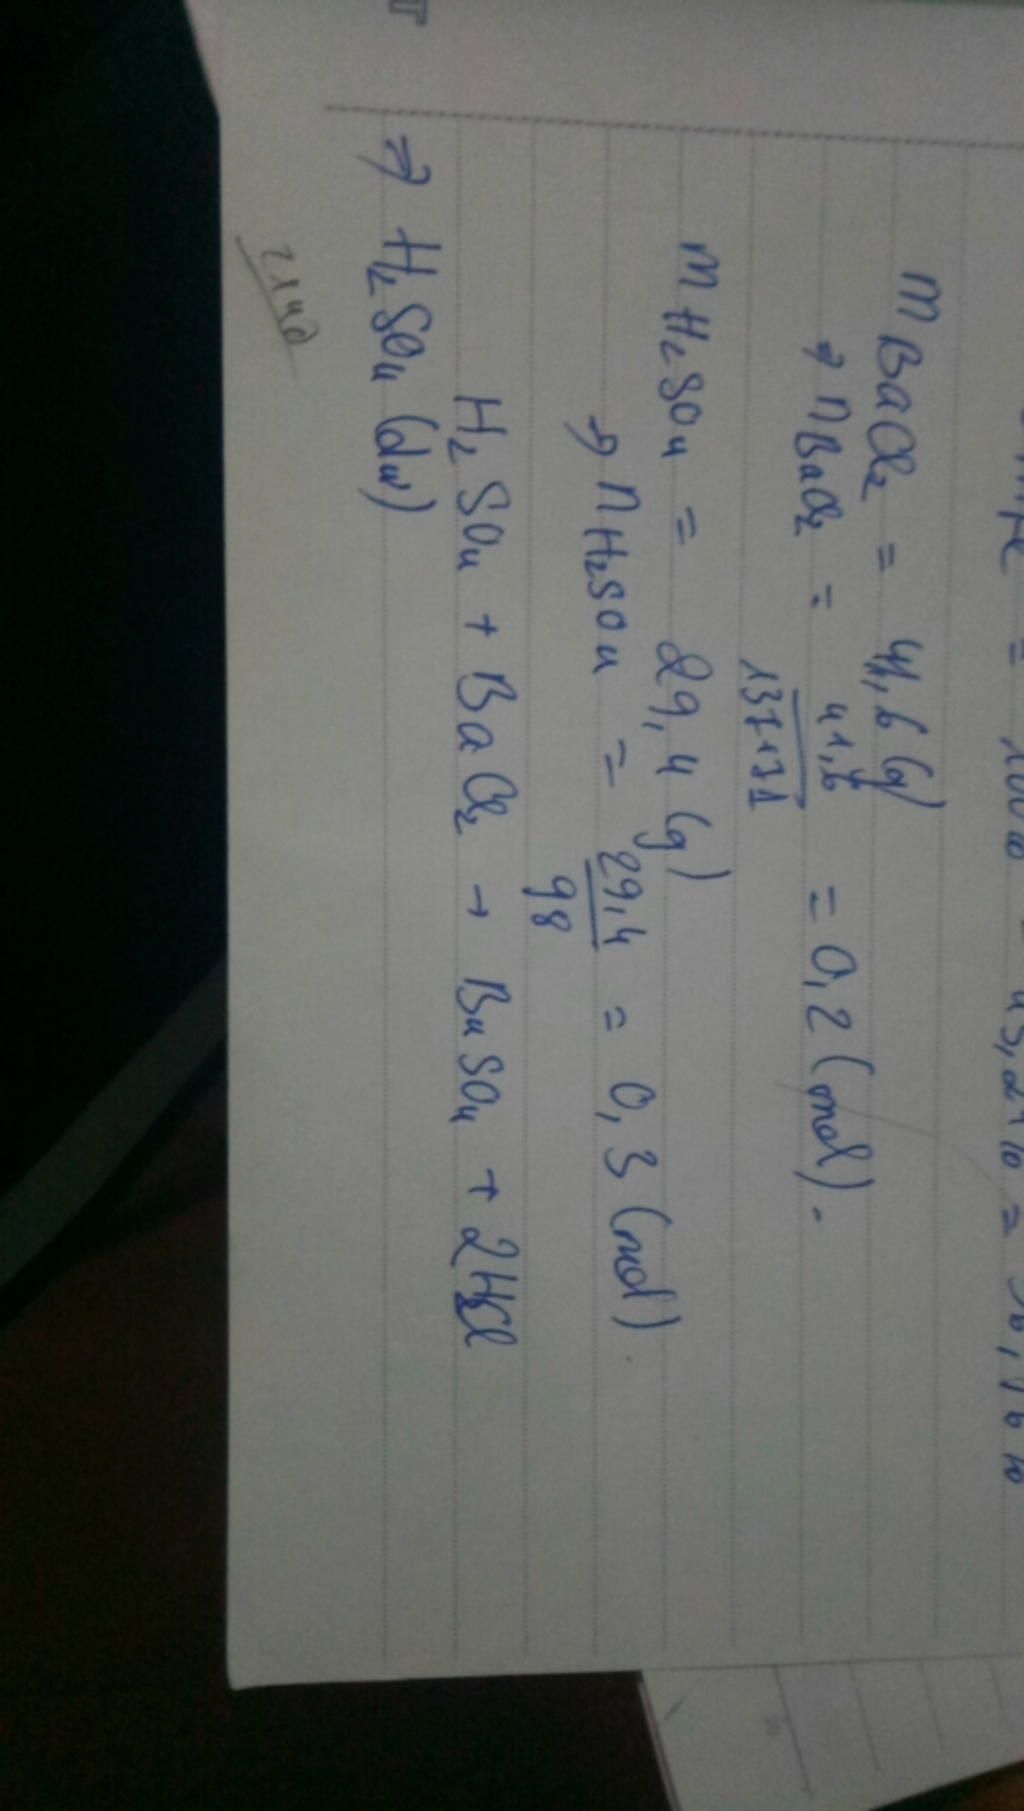 = 100% - 43,24% = 56,76%
mBaCl₂ = 41,6 (g)
→ nBaCl₂ = 41,6 / 137+71 = 0,2 (mol).
mH₂SO₄ = 29,4 (g)
→ nH₂SO₄ = 29,4 / 98 = 0,3 (mol).
H₂SO₄ + BaCl₂ → BaSO₄ + 2HCl
⇒ H₂SO₄ (dư)